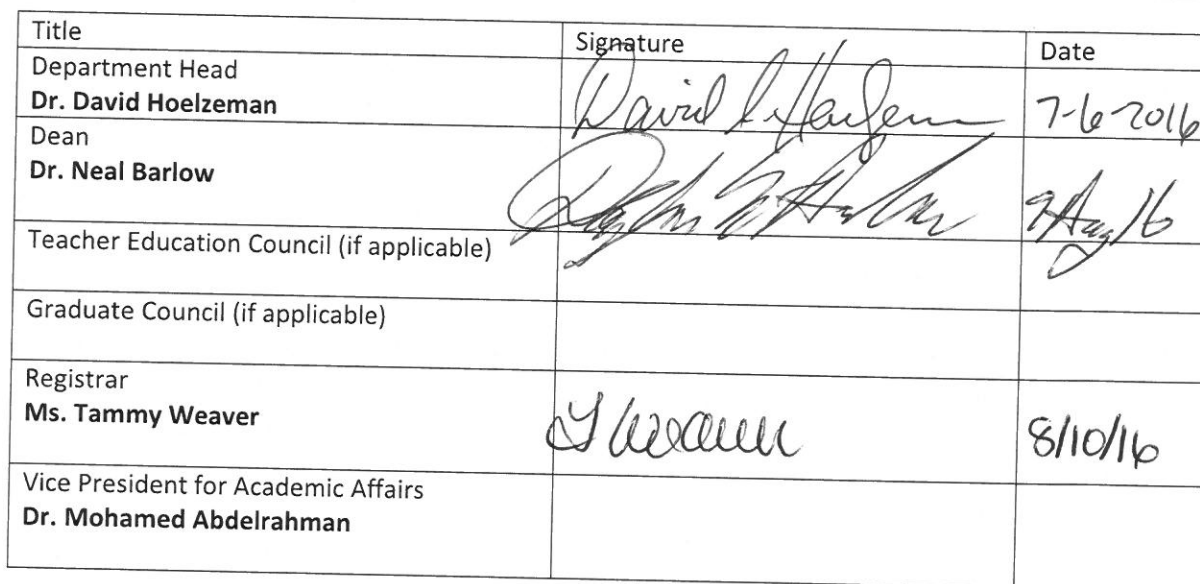 Title Signature Date
Department Head
Dr. David Hoelzeman David 7-6-2016
Dean
Dr. Neal Barlow
Teacher Education Council (if applicable)
Graduate Council (if applicable)
Registrar
Ms. Tammy Weaver T Weaver 8/10/16
Vice President for Academic Affairs
Dr. Mohamed Abdelrahman